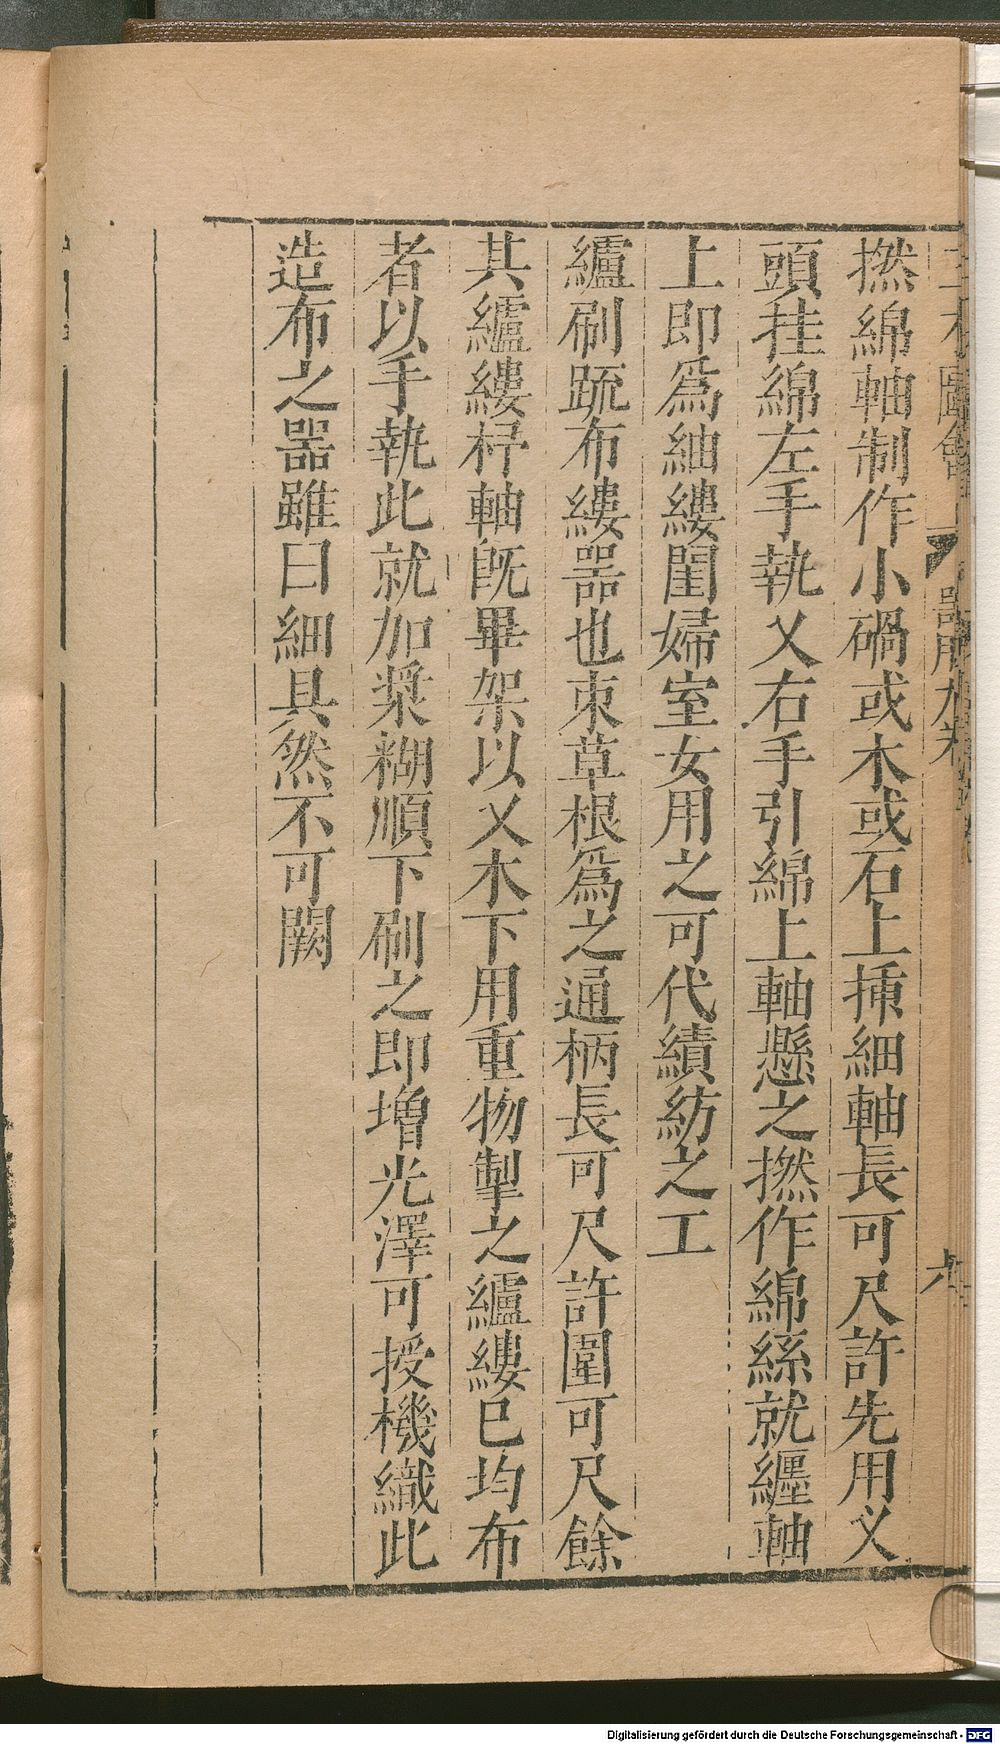 三才圖會 器用九卷
撚綿軸制作小碢或木或石上揷細軸長可尺許先用乂
頭挂綿左手執乂右手引綿上軸懸之撚作綿絲就纒軸
上即爲紬縷閨婦室女用之可代績紡之工
纑刷䟽布縷器也束草根爲之通柄長可尺許圍可尺餘
其纑縷杼軸旣畢架以乂木下用重物掣之纑縷已均布
者以手執此就加漿糊順下刷之即增光澤可授機織此
造布之器雖曰細具然不可闕
Digitalisierung gefördert durch die Deutsche Forschungsgemeinschaft - DFG